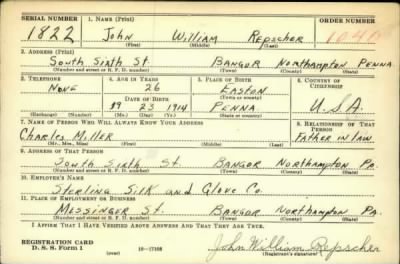 SERIAL NUMBER 1. NAME (Print) ORDER NUMBER
1822 John William Repscher
(First) (Middle) (Last)
2. ADDRESS (Print)
South Sixth St. Bangor Northampton Penna
(Number and street or R. F. D. number) (Town) (County) (State)
3. TELEPHONE 4. AGE IN YEARS 5. PLACE OF BIRTH 6. COUNTRY OF CITIZENSHIP
None 26 Easton
DATE OF BIRTH (Town or county)
23 1914 Penna U.S.A.
(Exchange) (Number) (Mo.) (Day) (Yr.) (State or country)
7. NAME OF PERSON WHO WILL ALWAYS KNOW YOUR ADDRESS 8. RELATIONSHIP OF THAT PERSON
Charles Miller Father in law
(Mr., Mrs., Miss) (First) (Middle) (Last)
9. ADDRESS OF THAT PERSON
South Sixth St. Bangor Northampton Pa.
(Number and street or R. F. D. number) (Town) (County) (State)
10. EMPLOYER'S NAME
Sterling Silk and Glove Co.
11. PLACE OF EMPLOYMENT OR BUSINESS
Messinger St. Bangor Northampton Pa.
(Number and street or R. F. D. number) (Town) (County) (State)
I AFFIRM THAT I HAVE VERIFIED ABOVE ANSWERS AND THAT THEY ARE TRUE.
REGISTRATION CARD
D. S. S. FORM 1 16-17105 John William Repscher
(over) (Registrant's signature)